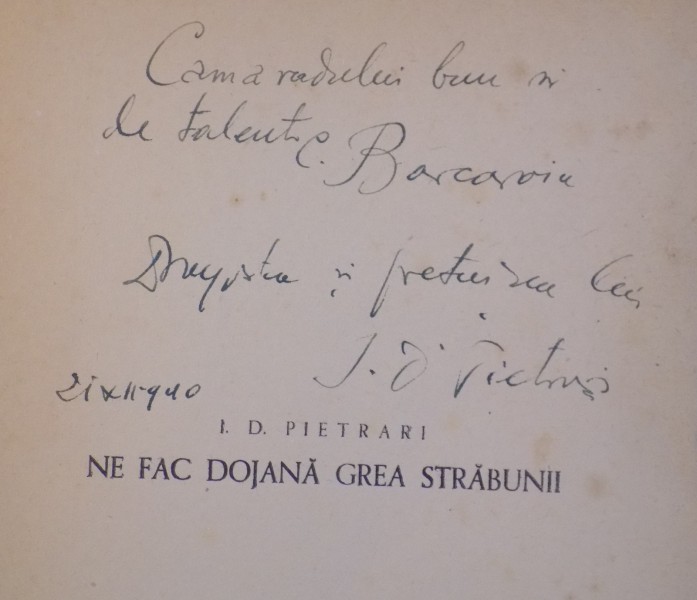 Camaradului bun și
de talent C. Barcaroiu
Dragostea și prețuirea lui
I. D. Pietrari
21 XII 940
I. D. PIETRARI
NE FAC DOJANĂ GREA STRĂBUNII